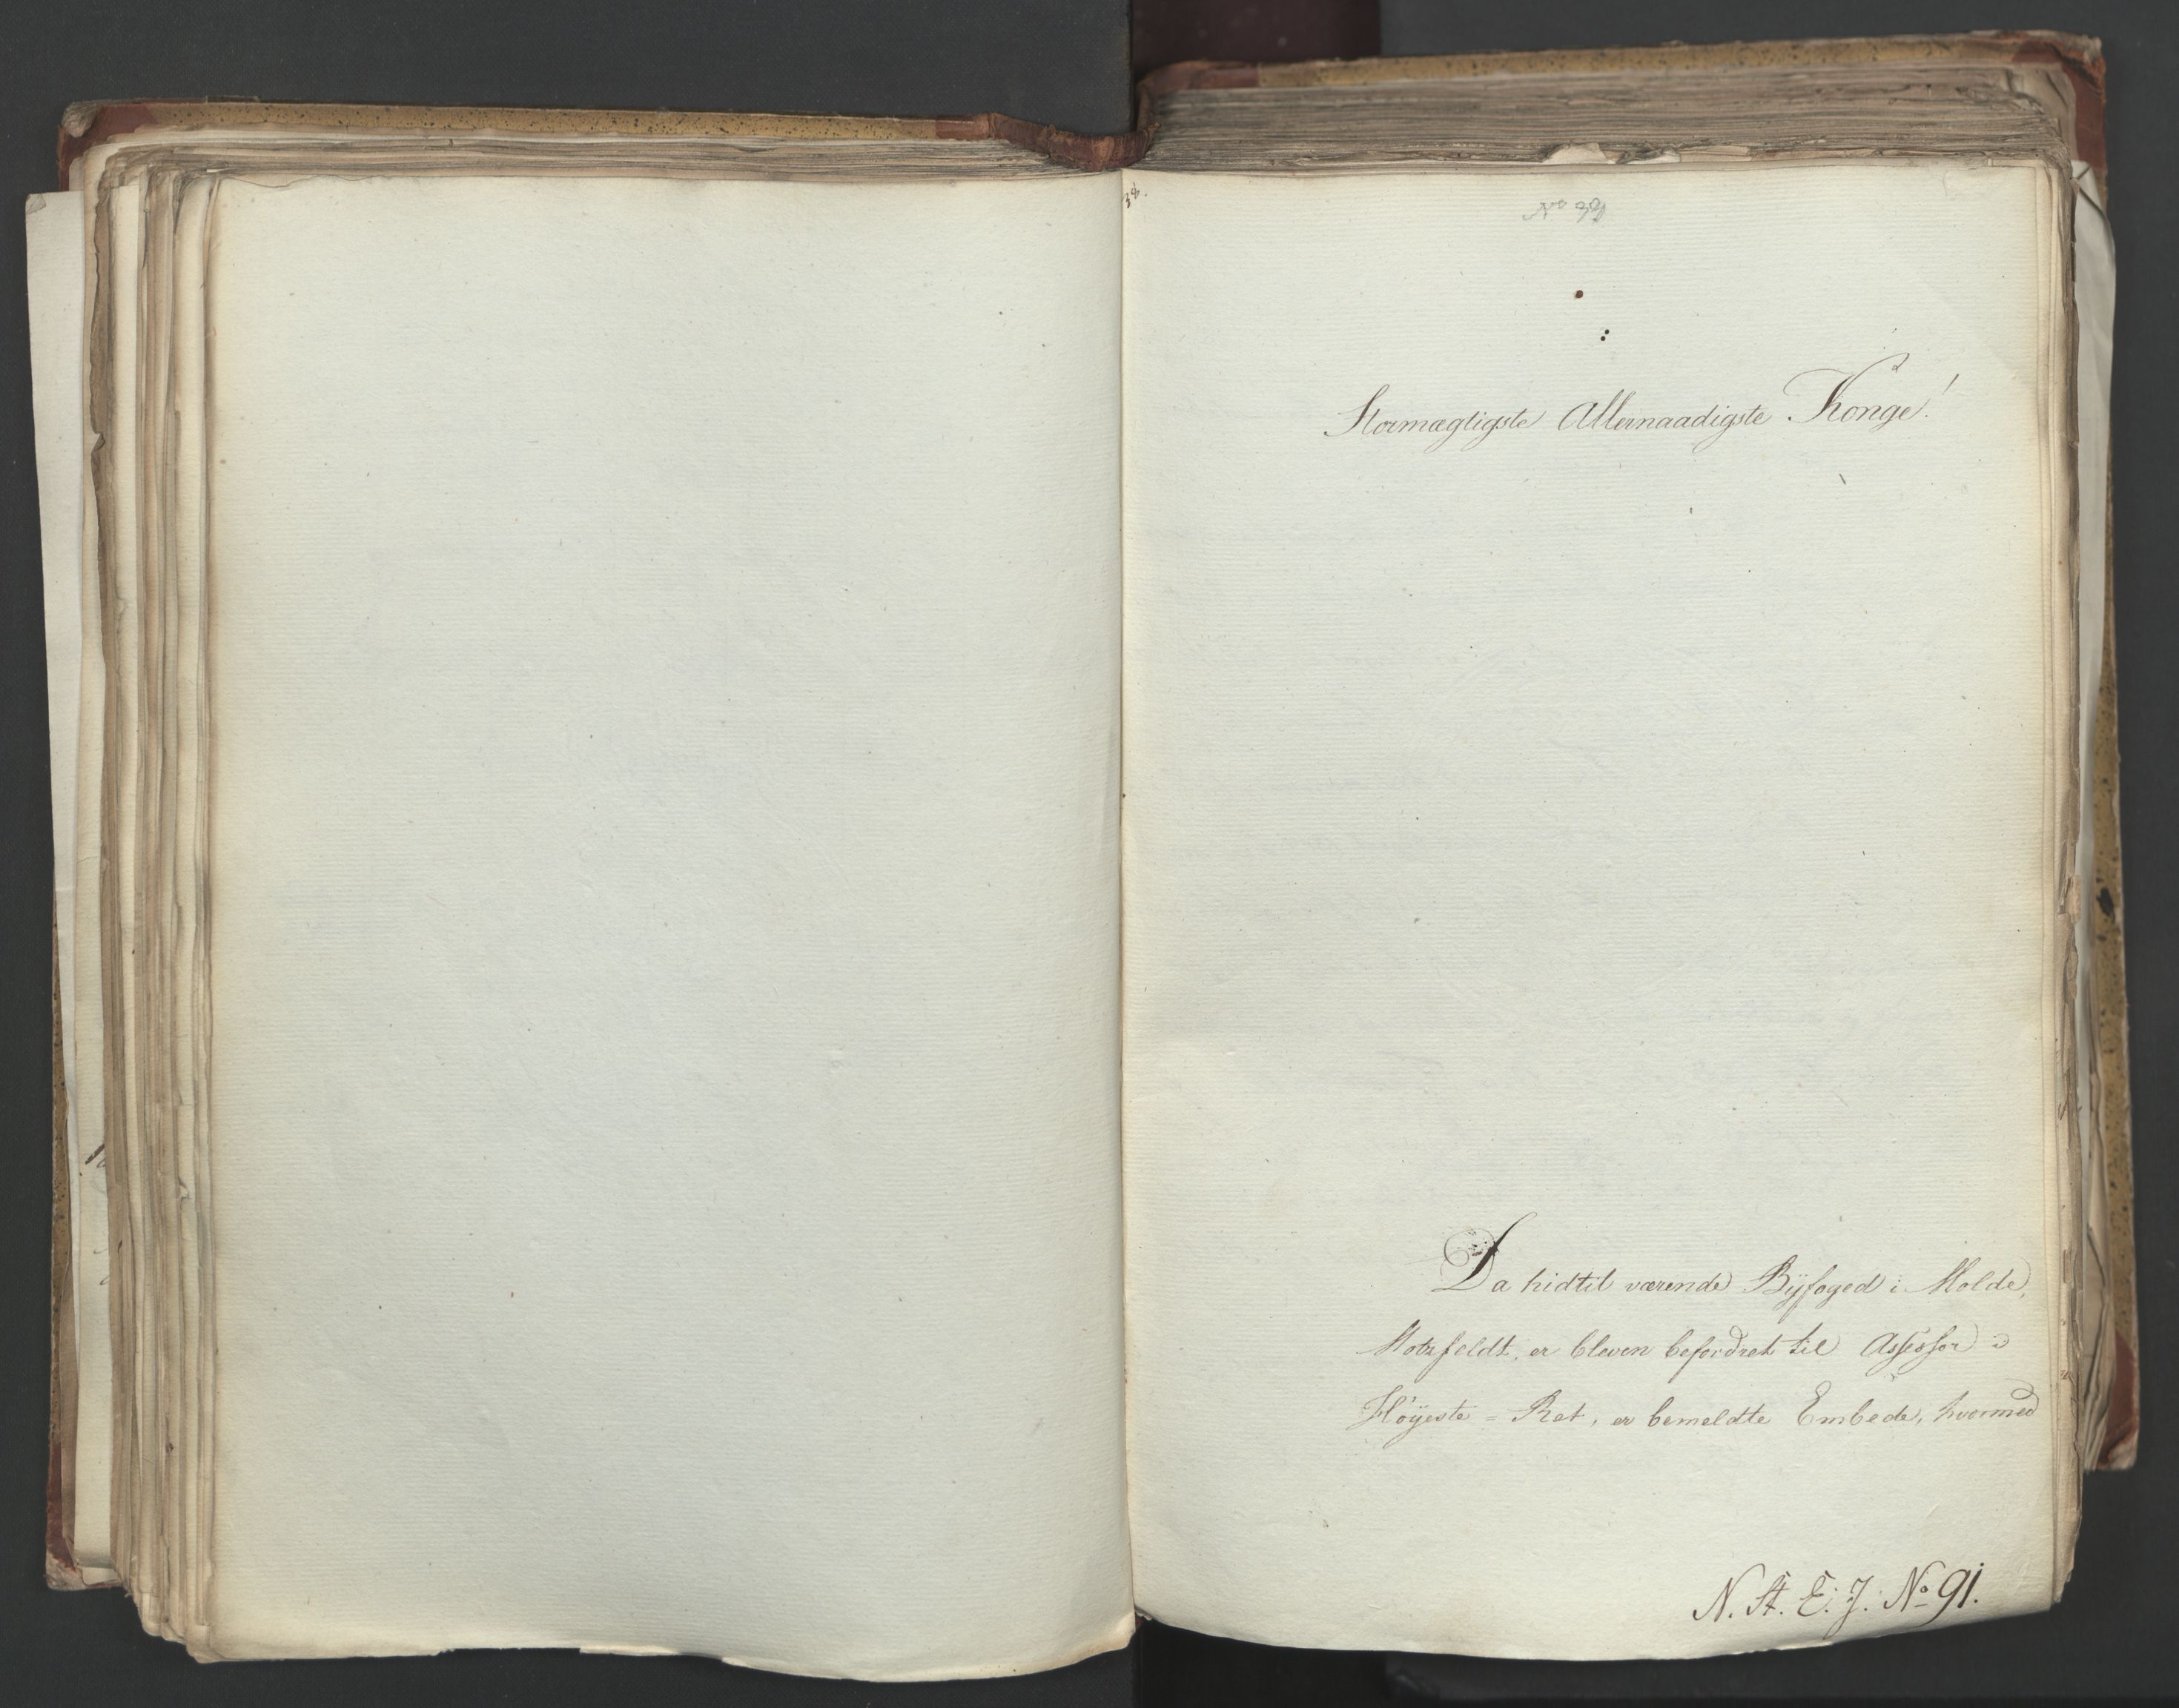 38.
No 39
Stormægtigste Allernaadigste Konge!
Da hidtil værende Byfoged i Molde,
Motzfeldt, er bleven befordret til Assessor i
Høyeste=Ret, er bemeldte Embede, hvormed
N. St. E. J. No 91.